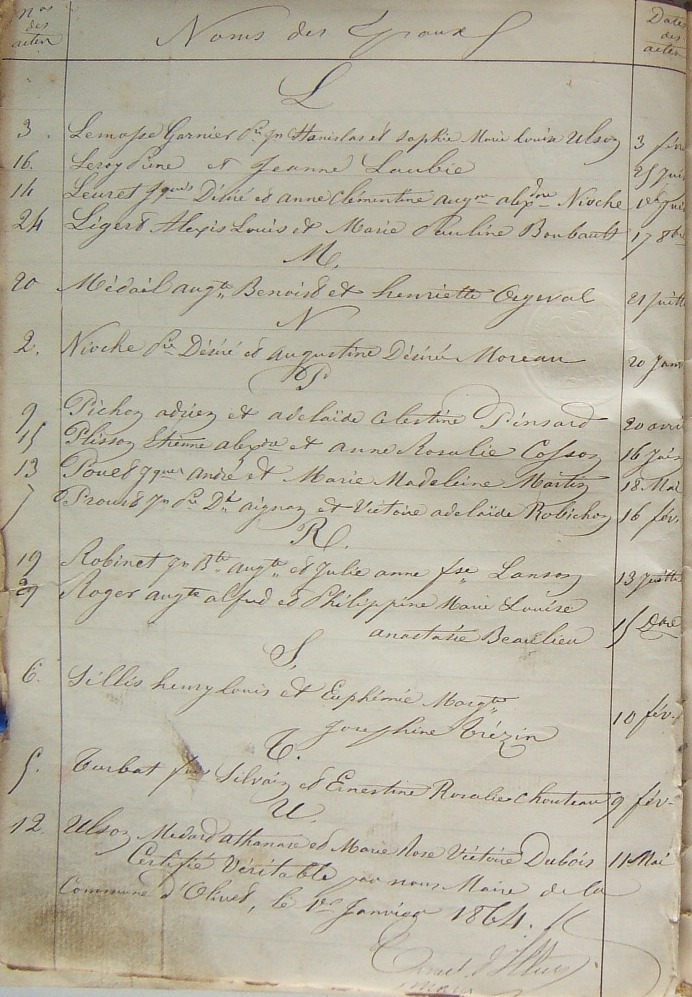 Nos des actes Noms des Epoux Dates des actes
L
3. Lemasse Garnier Pre Jn Stanislas et Sophie Marie Louise Ulson 3 fév
16. Leroy et Jeanne Laubie 25 Juin
14 Leuret Jques Désiré et anne Clémentine augne alexdrine Nioche 1er Juin
24 Ligerd Alexis Louis et Marie Pauline Boubault 17 8bre
M.
20 Médail augte Benoist et henriette 21 Juill
N
2. Nioche Pre Désiré et augustine Désirée Moreau 20 Janv
P.
9 Pichon adrien et adelaïde celestine Pinsard 20 avri
15 Plisson Etienne alexdre et anne Rosalie Cosson 16 Juin
13 Poued Jques andré et Marie Madeleine Martin 18 Mai
7 Proust Jn Pre Dt aignan et Victoire adelaïde Robichon 16 fév.
R.
19 Robinet Jn Bte augte et Julie anne fse Lanson 13 Juillet
29 Roger augte alfred et Philippine Marie Louise
anastasie Beaulieu 15 Xbre
S.
6. Sillis henry louis et Euphémie Margte
Josephine Trézin 10 fév.
T.
5. Turbat fois Silvain et Ernestine Rosalie Chouteau 9 fév.
U.
12. Ulson Medard athanase et Marie Rose Victoire Dubois 11 Mai
Certifié Véritable par nous Maire de la
Commune d'Olivet, le 1er Janvier 1864.
maire